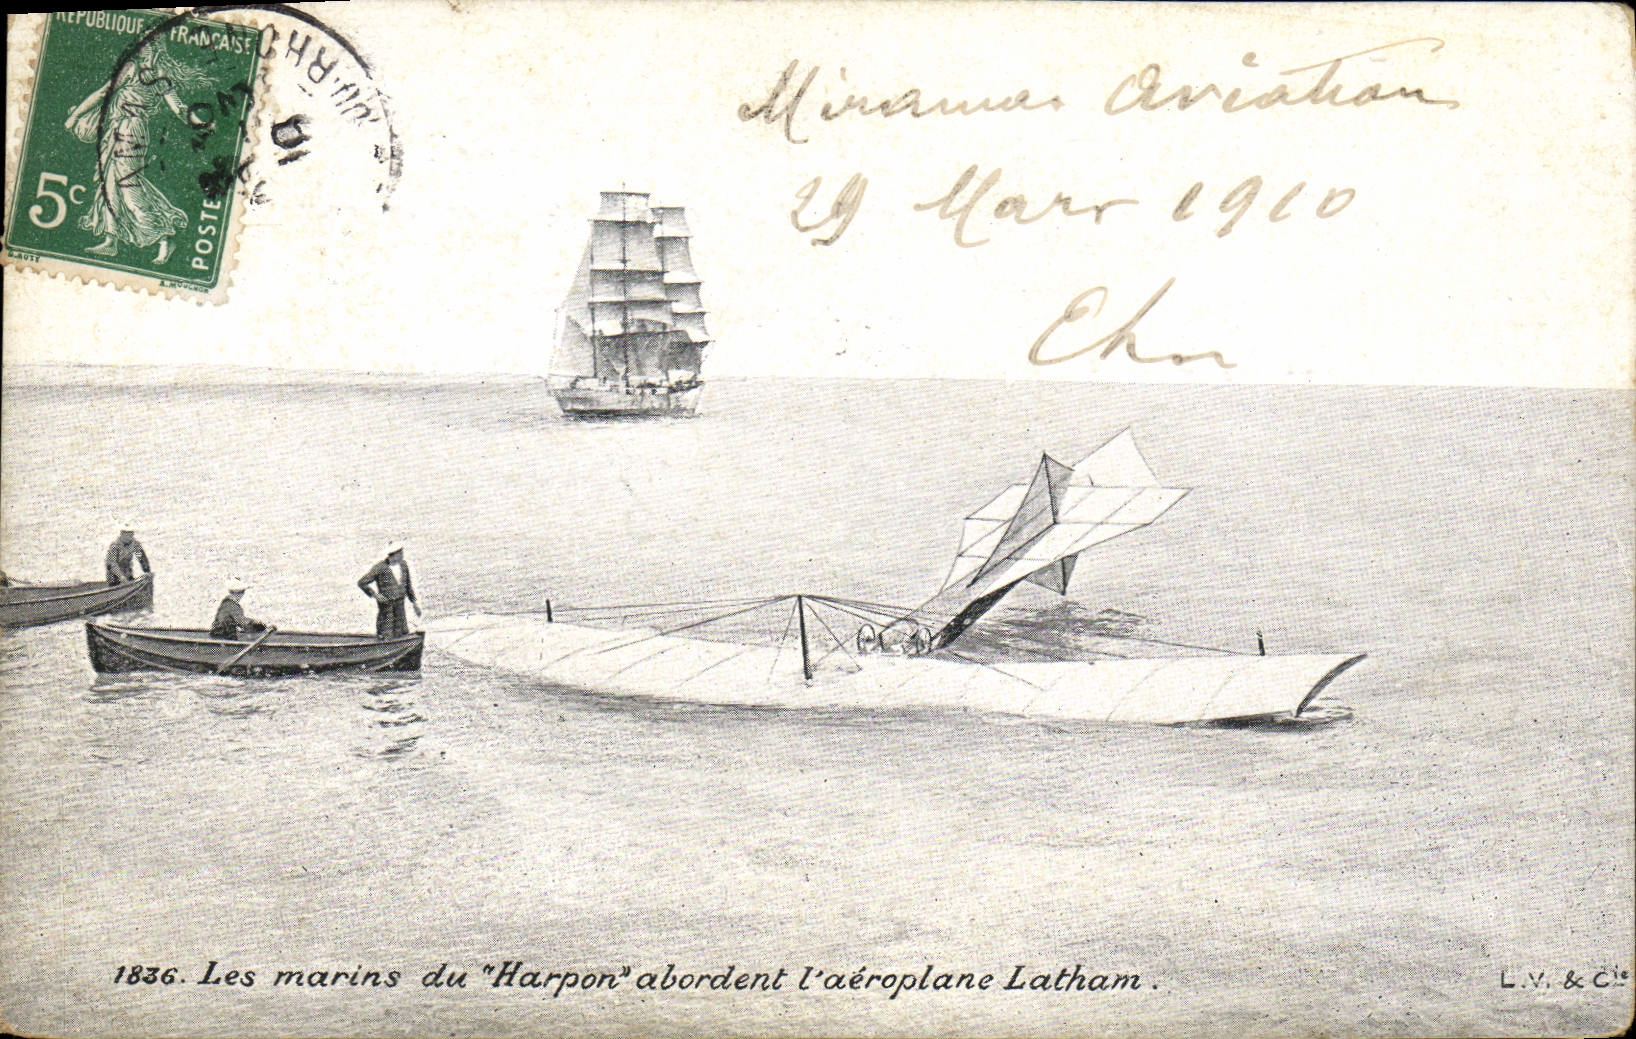 REPUBLIQUE FRANÇAISE
5c
POSTES
Miramas Aviation
29 Mars 1910
1836. Les marins du "Harpon" abordent l'aéroplane Latham.
L.V. & Cie